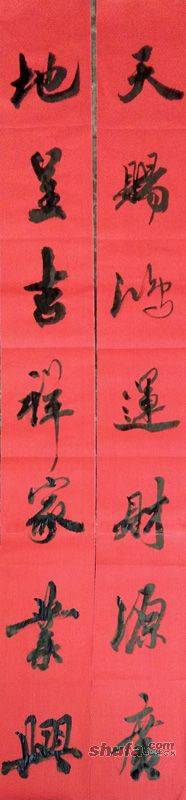 天賜鴻運財源廣
地呈吉祥家業興
shufa.com